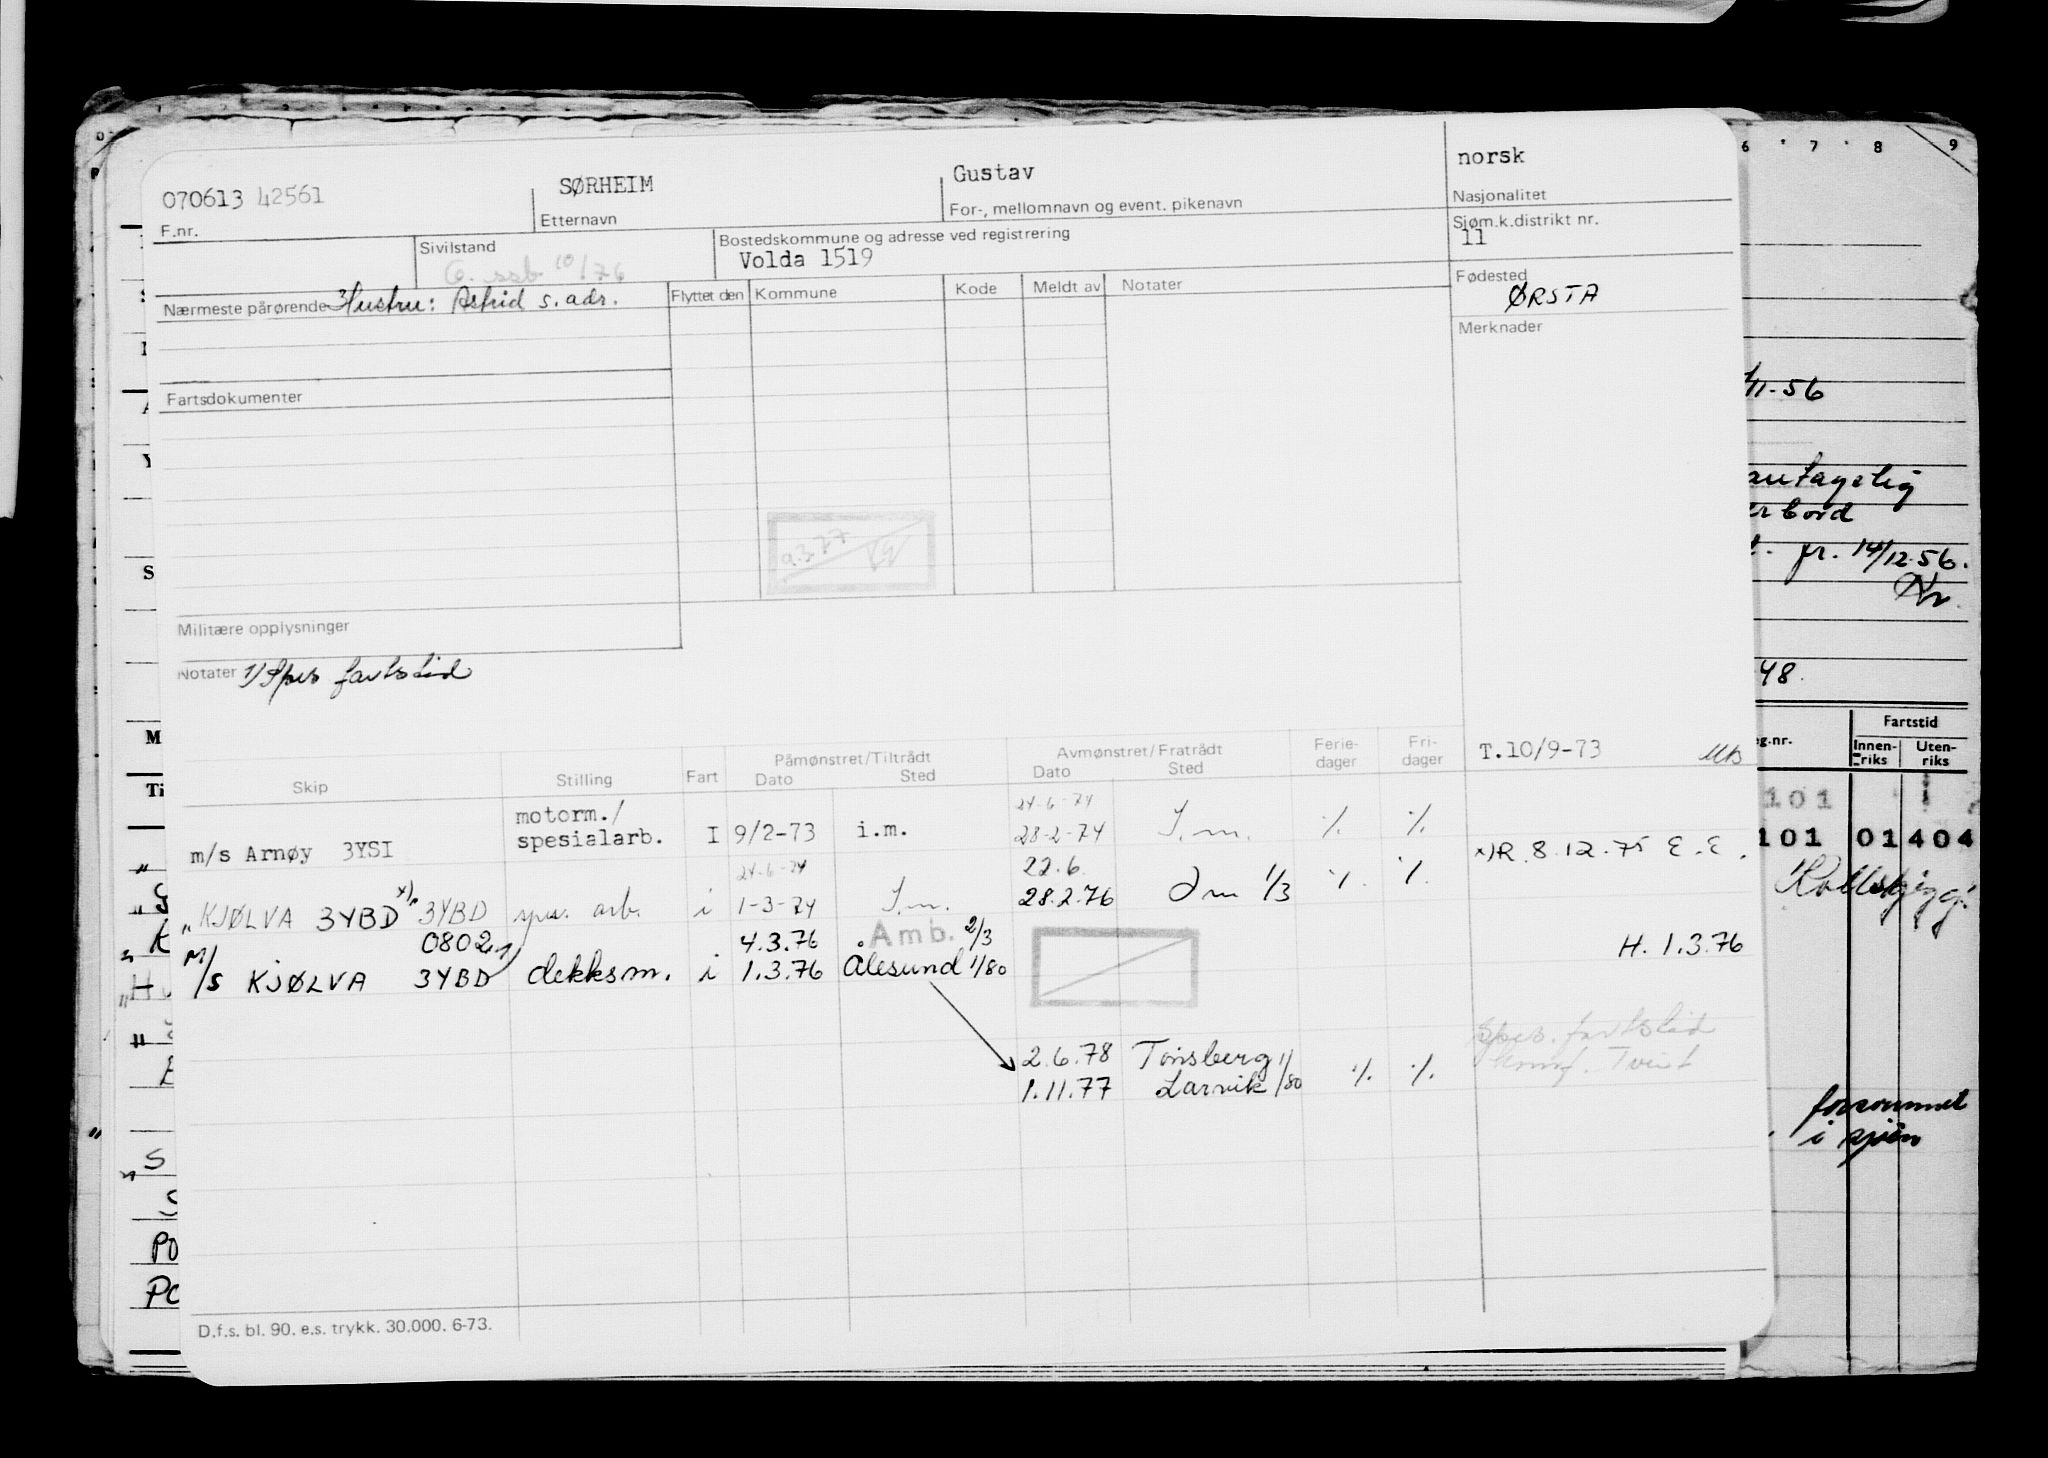 070613 42561
F.nr.
SØRHEIM
Etternavn
Gustav
For-, mellomnavn og event. pikenavn
norsk
Nasjonalitet
Sivilstand
G. ssb 10/76
Bostedskommune og adresse ved registrering
Volda 1519
Sjøm.k.distrikt nr.
11
Nærmeste pårørende Hustru: Astrid s. adr.
Flyttet den
Kommune
Kode
Meldt av
Notater
Fødested
ØRSTA
Merknader
Fartsdokumenter
9.3.77
Militære opplysninger
Notater 1) Spes fartstid
Skip
Stilling
Fart
Påmønstret/Tiltrådt
Dato
Sted
Avmønstret/Fratrådt
Dato
Sted
Ferie-
dager
Fri-
dager
T.10/9-73
m/s Arnøy 3YSI
motorm./
spesialarb.
I
9/2-73
i.m.
24-6-74
28-2-74
I.m.
·/·
·/·
x)R. 8.12.75 E.E.
" KJØLVA 3YBD x) 3YBD
spes. arb.
i
24-6-74
1-3-74
I.m.
22.6.
28.2.76
Im 1/3
·/·
·/·
M/S KJØLVA 3YBD
0802 1)
dekksm.
i
4.3.76
1.3.76
Amb. 2/3
Ålesund 1/80
H. 1.3.76
2.6.78 Tønsberg 1/
1.11.77 Larvik 1/80
·/·
·/·
Spes. fartstid
D.f.s. bl. 90. e.s. trykk. 30.000. 6-73.
6 7 8 9
11-56
antagelig
bord
fr. 14/12-56.
48.
g.nr.
Fartstid
Innen-
riks
Uten-
riks
101
101 01 404
forsømmet
i sjøen